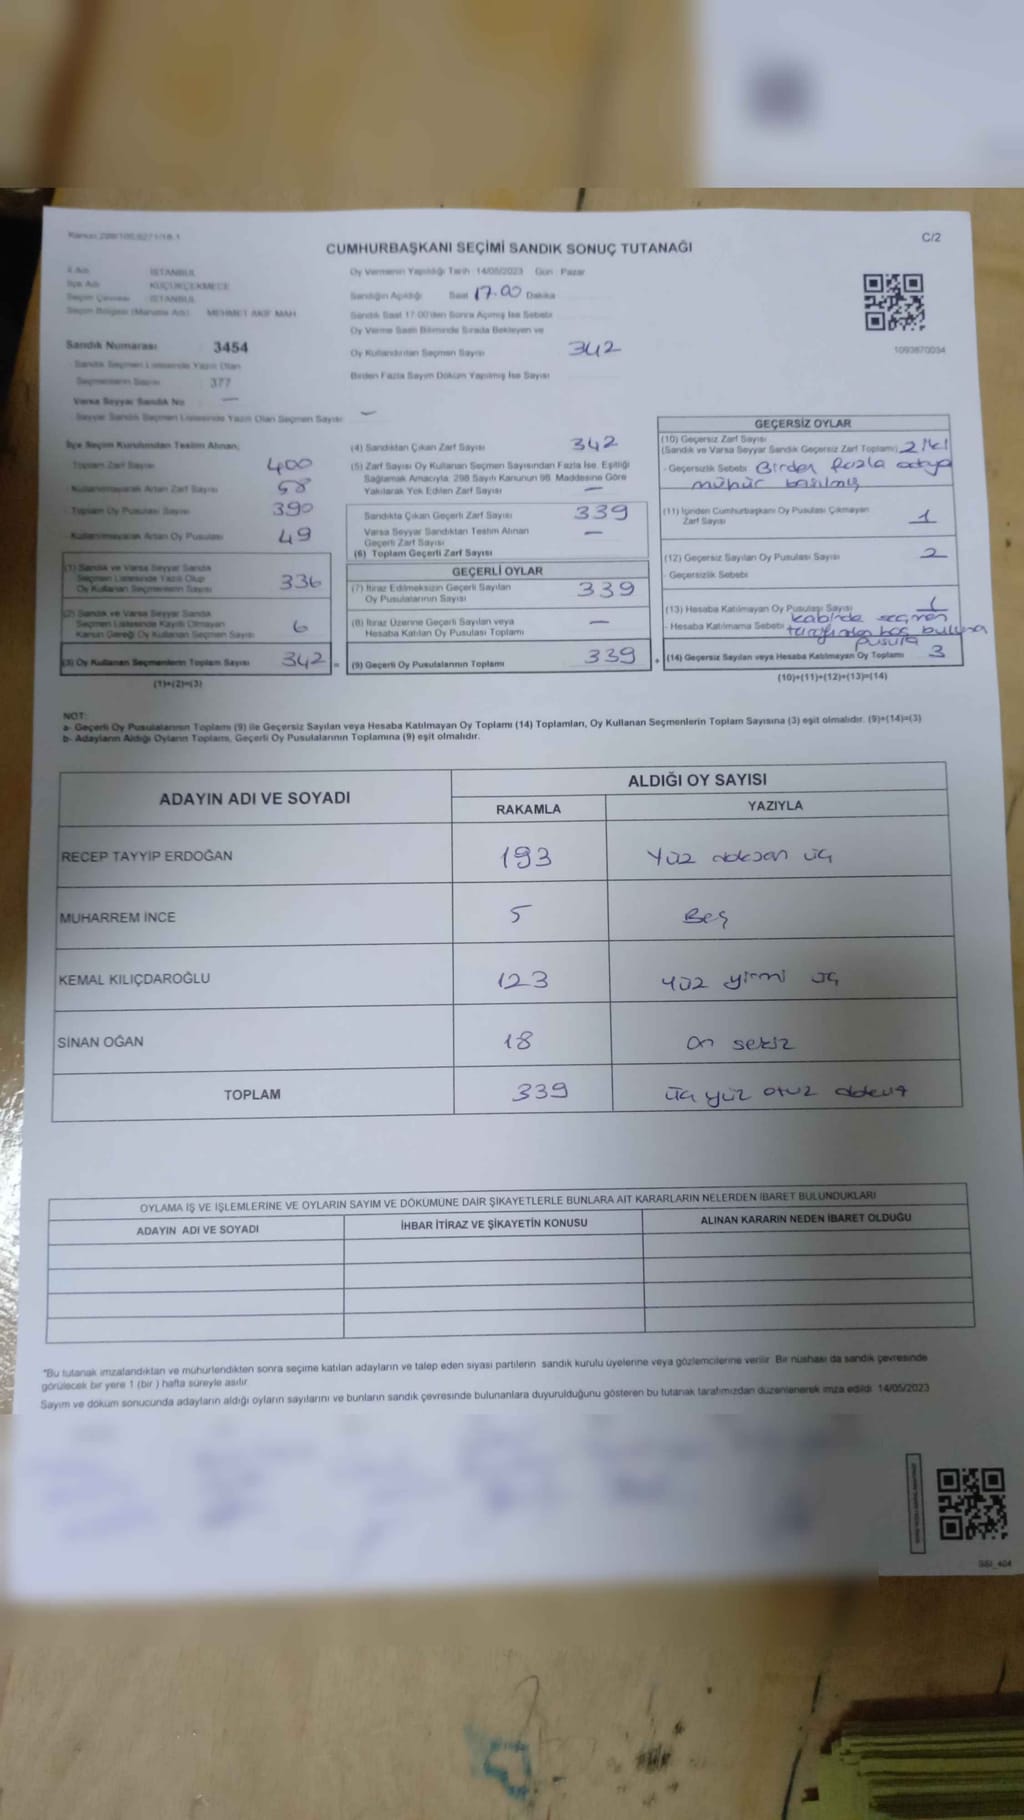 C/2
CUMHURBAŞKANI SEÇİMİ SANDIK SONUÇ TUTANAĞI
İl Adı : İSTANBUL
İlçe Adı : KÜÇÜKÇEKMECE
Seçim Çevresi : İSTANBUL
Seçim Bölgesi (Muhtarlık Adı) : MEHMET AKİF MAH
Oy Vermenin Yapıldığı Tarih :14/05/2023 Gün : Pazar
Sandığın Açıldığı Saat 17.00 Dakika
Sandık Saat 17:00'den Sonra Açılmış İse Sebebi
Oy Verme Saati Bitiminde Sırada Bekleyen ve
Oy Kullandırılan Seçmen Sayısı 342
Birden Fazla Sayım Döküm Yapılmış İse Sayısı
1093870034
Sandık Numarası 3454
Sandık Seçmen Listesinde Yazılı Olan
Seçmenlerin Sayısı 377
Varsa Seyyar Sandık No —
Seyyar Sandık Seçmen Listesinde Yazılı Olan Seçmen Sayısı —
İlçe Seçim Kurulundan Teslim Alınan;
Toplam Zarf Sayısı 400
- Kullanılmayarak Artan Zarf Sayısı 58
Toplam Oy Pusulası Sayısı 390
- Kullanılmayarak Artan Oy Pusulası 49
(1) Sandık ve Varsa Seyyar Sandık
Seçmen Listesinde Yazılı Olup
Oy Kullanan Seçmenlerin Sayısı 336
(2) Sandık ve Varsa Seyyar Sandık
Seçmen Listesinde Kayıtlı Olmayan
Kanun Gereği Oy Kullanan Seçmen Sayısı 6
(3) Oy Kullanan Seçmenlerin Toplam Sayısı 342 =
(1)+(2)=(3)
(4) Sandıktan Çıkan Zarf Sayısı 342
(5) Zarf Sayısı Oy Kullanan Seçmen Sayısından Fazla İse, Eşitliği
Sağlamak Amacıyla, 298 Sayılı Kanunun 98. Maddesine Göre
Yakılarak Yok Edilen Zarf Sayısı —
Sandıkta Çıkan Geçerli Zarf Sayısı 339
Varsa Seyyar Sandıktan Teslim Alınan
Geçerli Zarf Sayısı —
(6) Toplam Geçerli Zarf Sayısı
GEÇERLİ OYLAR
(7) İtiraz Edilmeksizin Geçerli Sayılan
Oy Pusulalarının Sayısı 339
(8) İtiraz Üzerine Geçerli Sayılan veya
Hesaba Katılan Oy Pusulası Toplamı —
(9) Geçerli Oy Pusulalarının Toplamı 339 +
GEÇERSİZ OYLAR
(10) Geçersiz Zarf Sayısı
(Sandık ve Varsa Seyyar Sandık Geçersiz Zarf Toplamı) 2 iki
- Geçersizlik Sebebi Birden fazla
mühür basılmış
(11) İçinden Cumhurbaşkanı Oy Pusulası Çıkmayan
Zarf Sayısı 1
(12) Geçersiz Sayılan Oy Pusulası Sayısı 2
- Geçersizlik Sebebi
(13) Hesaba Katılmayan Oy Pusulası Sayısı 1
- Hesaba Katılmama Sebebi kabinde seçmen
tarafından boş buluna
pusula
(14) Geçersiz Sayılan veya Hesaba Katılmayan Oy Toplamı 3
(10)+(11)+(12)+(13)=(14)
NOT:
a- Geçerli Oy Pusulalarının Toplamı (9) ile Geçersiz Sayılan veya Hesaba Katılmayan Oy Toplamı (14) Toplamları, Oy Kullanan Seçmenlerin Toplam Sayısına (3) eşit olmalıdır. (9)+(14)=(3)
b- Adayların Aldığı Oyların Toplamı, Geçerli Oy Pusulalarının Toplamına (9) eşit olmalıdır.
ADAYIN ADI VE SOYADI
ALDIĞI OY SAYISI
RAKAMLA YAZIYLA
RECEP TAYYİP ERDOĞAN 193 Yüz doksan üç
MUHARREM İNCE 5 Beş
KEMAL KILIÇDAROĞLU 123 Yüz yirmi üç
SİNAN OĞAN 18 On sekiz
TOPLAM 339 üç yüz otuz dokuz
OYLAMA İŞ VE İŞLEMLERİNE VE OYLARIN SAYIM VE DÖKÜMÜNE DAİR ŞİKAYETLERLE BUNLARA AİT KARARLARIN NELERDEN İBARET BULUNDUKLARI
ADAYIN ADI VE SOYADI İHBAR İTİRAZ VE ŞİKAYETİN KONUSU ALINAN KARARIN NEDEN İBARET OLDUĞU
*Bu tutanak imzalandıktan ve mühürlendikten sonra seçime katılan adayların ve talep eden siyasi partilerin sandık kurulu üyelerine veya gözlemcilerine verilir. Bir nüshası da sandık çevresinde
görülecek bir yere 1 (bir ) hafta süreyle asılır.
Sayım ve döküm sonucunda adayların aldığı oyların sayılarını ve bunların sandık çevresinde bulunanlara duyurulduğunu gösteren bu tutanak tarafımızdan düzenlenerek imza edildi. 14/05/2023